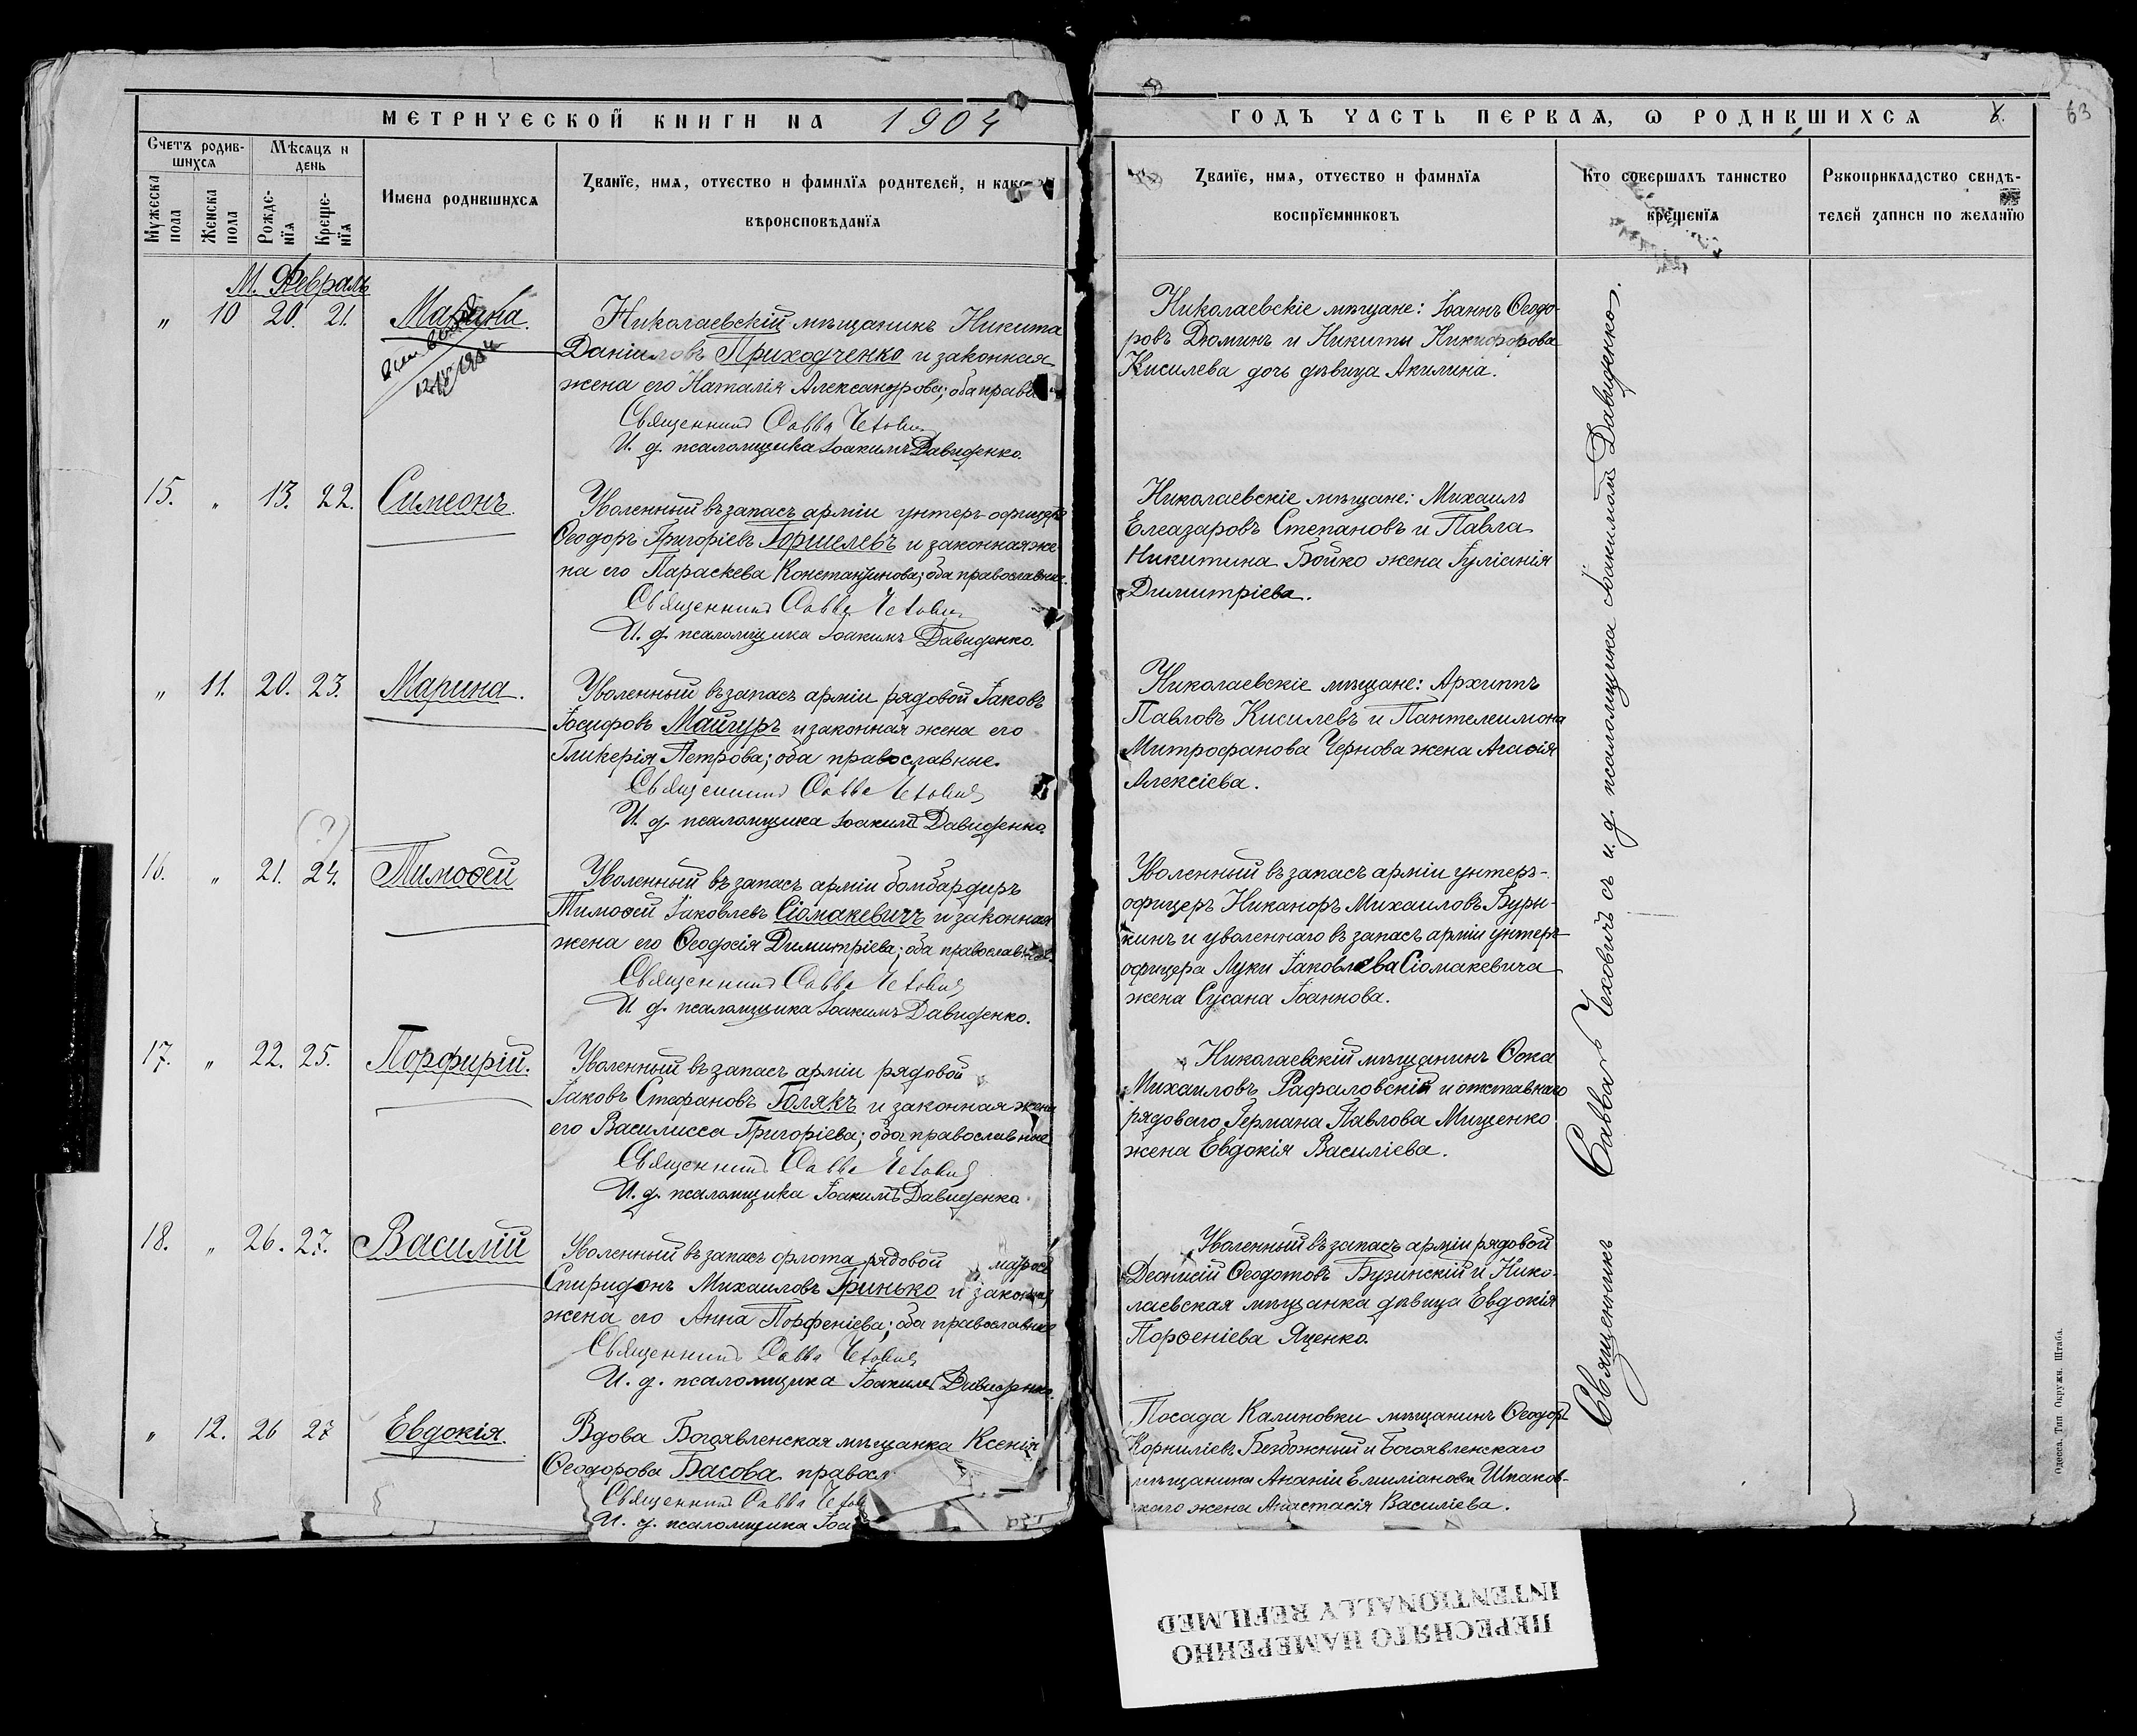 МЕТРИЧЕСКОЙ КНИГИ НА 1904
Счетъ родив-
шихся
Мѣсяцъ и
день
Мужеска
пола
Женска
пола
Рожде-
нїя
Креще-
нїя
Имена родившихся
Званїе, имя, отчество и фамилїя родителей, и
вѣроисповѣданїя
М. Февраль
" 10 20. 21. Марина.
Николаевскій мѣщанинъ Никита
Даніиловъ Приходченко и законная
жена его Наталія Александрова; оба правос
Священникъ Савва Чехович
И. д. псаломщика Іоакимъ Давиденко.
15. " 13. 22. Симеонъ.
Уволенный въ запасъ арміи унтеръ-офицеръ
Ѳеодоръ Григоріевъ Горшелевъ и законная же
на его Параскева Константинова; оба православные.
Священникъ Савва Чехович
И. д. псаломщика Іоакимъ Давиденко.
" 11. 20. 23. Марина.
Уволенный въ запасъ арміи рядовой Іаковъ
Іосифовъ Майгуръ и законная жена его
Гликерія Петрова; оба православные.
Священникъ Савва Чехович
И. д. псаломщика Іоакимъ Давиденко.
(?)
16. " 21. 24. Тимоѳей
Уволенный въ запасъ арміи бомбардиръ
Тимоѳей Іаковлевъ Сіомакевичъ и законная
жена его Ѳеодосія Димитріева; оба православные.
Священникъ Савва Чехович
И. д. псаломщика Іоакимъ Давиденко.
17. " 22. 25. Порфирій.
Уволенный въ запасъ арміи рядовой
Іаковъ Стефановъ Голякъ и законная жена
его Василисса Григоріева; оба православные
Священникъ Савва Чехович
И. д. псаломщика Іоакимъ Давиденко
18. " 26. 27. Василій
Уволенный въ запасъ флота рядовой матросъ
Спиридонъ Михаиловъ Гринько и законная
жена его Анна Парфеніева; оба православные
Священникъ Савва Чехович
И. д. псаломщика Іоакимъ Давиденко.
" 12. 26 27 Евдокія.
Вдова Богоявленская мѣщанка Ксенія
Ѳеодорова Басова правосл
Священникъ Савва Чехов
И. д. псаломщика Іоа
ГОДЪ ЧАСТЬ ПЕРВАЯ, Ѡ РОДИВШИХСЯ
63
Званїе, имя, отчество и фамилїя
воспрїемниковъ
Кто совершалъ таинство
крещенїя
Рукоприкладство свидѣ-
телей записи по желанїю
Николаевскіе мѣщане: Іоаннъ Ѳеодо-
ровъ Дюминъ и Никиты Никифорова
Кисилева дочь дѣвица Акилина.
Николаевскіе мѣщане: Михаилъ
Елеазаровъ Степановъ и Павла
Никитина Бойко жена Іуліанія
Димитріева.
Николаевскіе мѣщане: Архиппъ
Павловъ Кисилевъ и Пантелеимона
Митрофанова Чернова жена Агаѳія
Алексіева.
Уволенный въ запасъ арміи унтеръ-
офицеръ Никаноръ Михаиловъ Буры-
кинъ и уволеннаго въ запасъ арміи унтеръ-
офицера Луки Іаковлева Сіомакевича
жена Сусана Іоаннова.
Николаевскій мѣщанинъ Ѳока
Михаиловъ Рафаловскій и отставнаго
рядоваго Германа Павлова Мищенко
жена Евдокія Василіева.
Уволенный въ запасъ арміи рядовой
Деонисій Ѳеодотовъ Бузинскій и Нико-
лаевская мѣщанка дѣвица Евдокія
Парѳеніева Яценко.
Посада Калиновки мѣщанинъ Ѳеодоръ
Корниліевъ Безбожный и Богоявленскаго
мѣщанина Ананіи Емиліанова Шпаков-
скаго жена Анастасія Василіева.
Священникъ Савва Чеховичъ съ и. д. псаломщика Іоакимомъ Давиденко.
Одесса. Тип. Окружн. Штаба.
ПЕРЕСНЯТО НАМЕРЕННО
INTENTIONALLY REFILMED